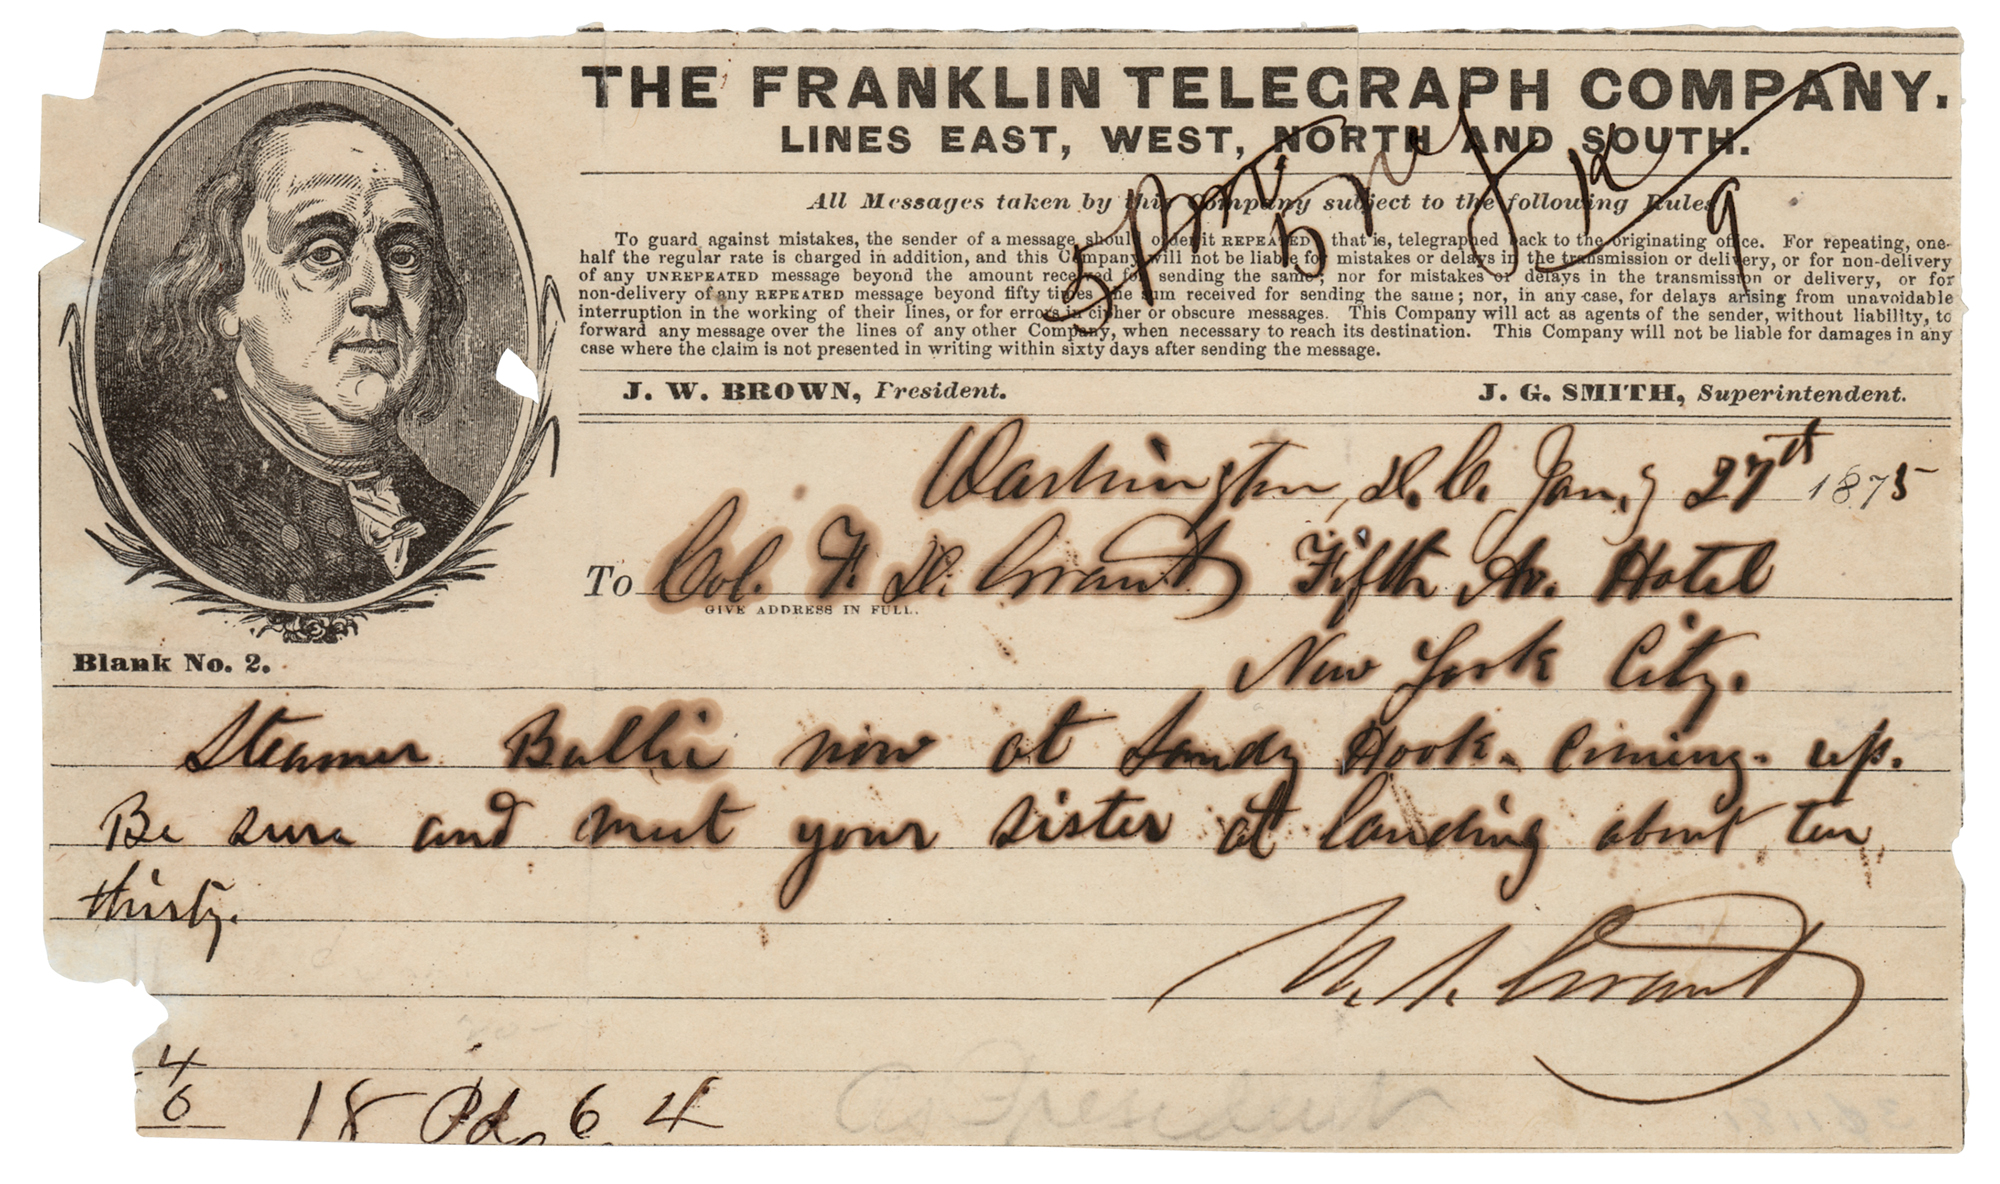 THE FRANKLIN TELEGRAPH COMPANY.
LINES EAST, WEST, NORTH AND SOUTH.
All Messages taken by this Company subject to the following Rules
To guard against mistakes, the sender of a message should order it REPEATED; that is, telegraphed back to the originating office. For repeating, one-
half the regular rate is charged in addition, and this Company will not be liable for mistakes or delays in the transmission or delivery, or for non-delivery
of any UNREPEATED message beyond the amount received for sending the same; nor for mistakes or delays in the transmission or delivery, or for
non-delivery of any REPEATED message beyond fifty times the sum received for sending the same; nor, in any case, for delays arising from unavoidable
interruption in the working of their lines, or for errors in cipher or obscure messages. This Company will act as agents of the sender, without liability, to
forward any message over the lines of any other Company, when necessary to reach its destination. This Company will not be liable for damages in any
case where the claim is not presented in writing within sixty days after sending the message.
J. W. BROWN, President. J. G. SMITH, Superintendent.
Washington, D.C. Jan.y 27th 1875
To Col. F. D. Grant Fifth Av. Hotel
GIVE ADDRESS IN FULL.
New York City.
Blank No. 2.
Steamer Baltic now at Sandy Hook. Coming. up.
Be sure and meet your sister at landing about ten
thirty.
U. S. Grant
4
6
18 Pd. 64
President